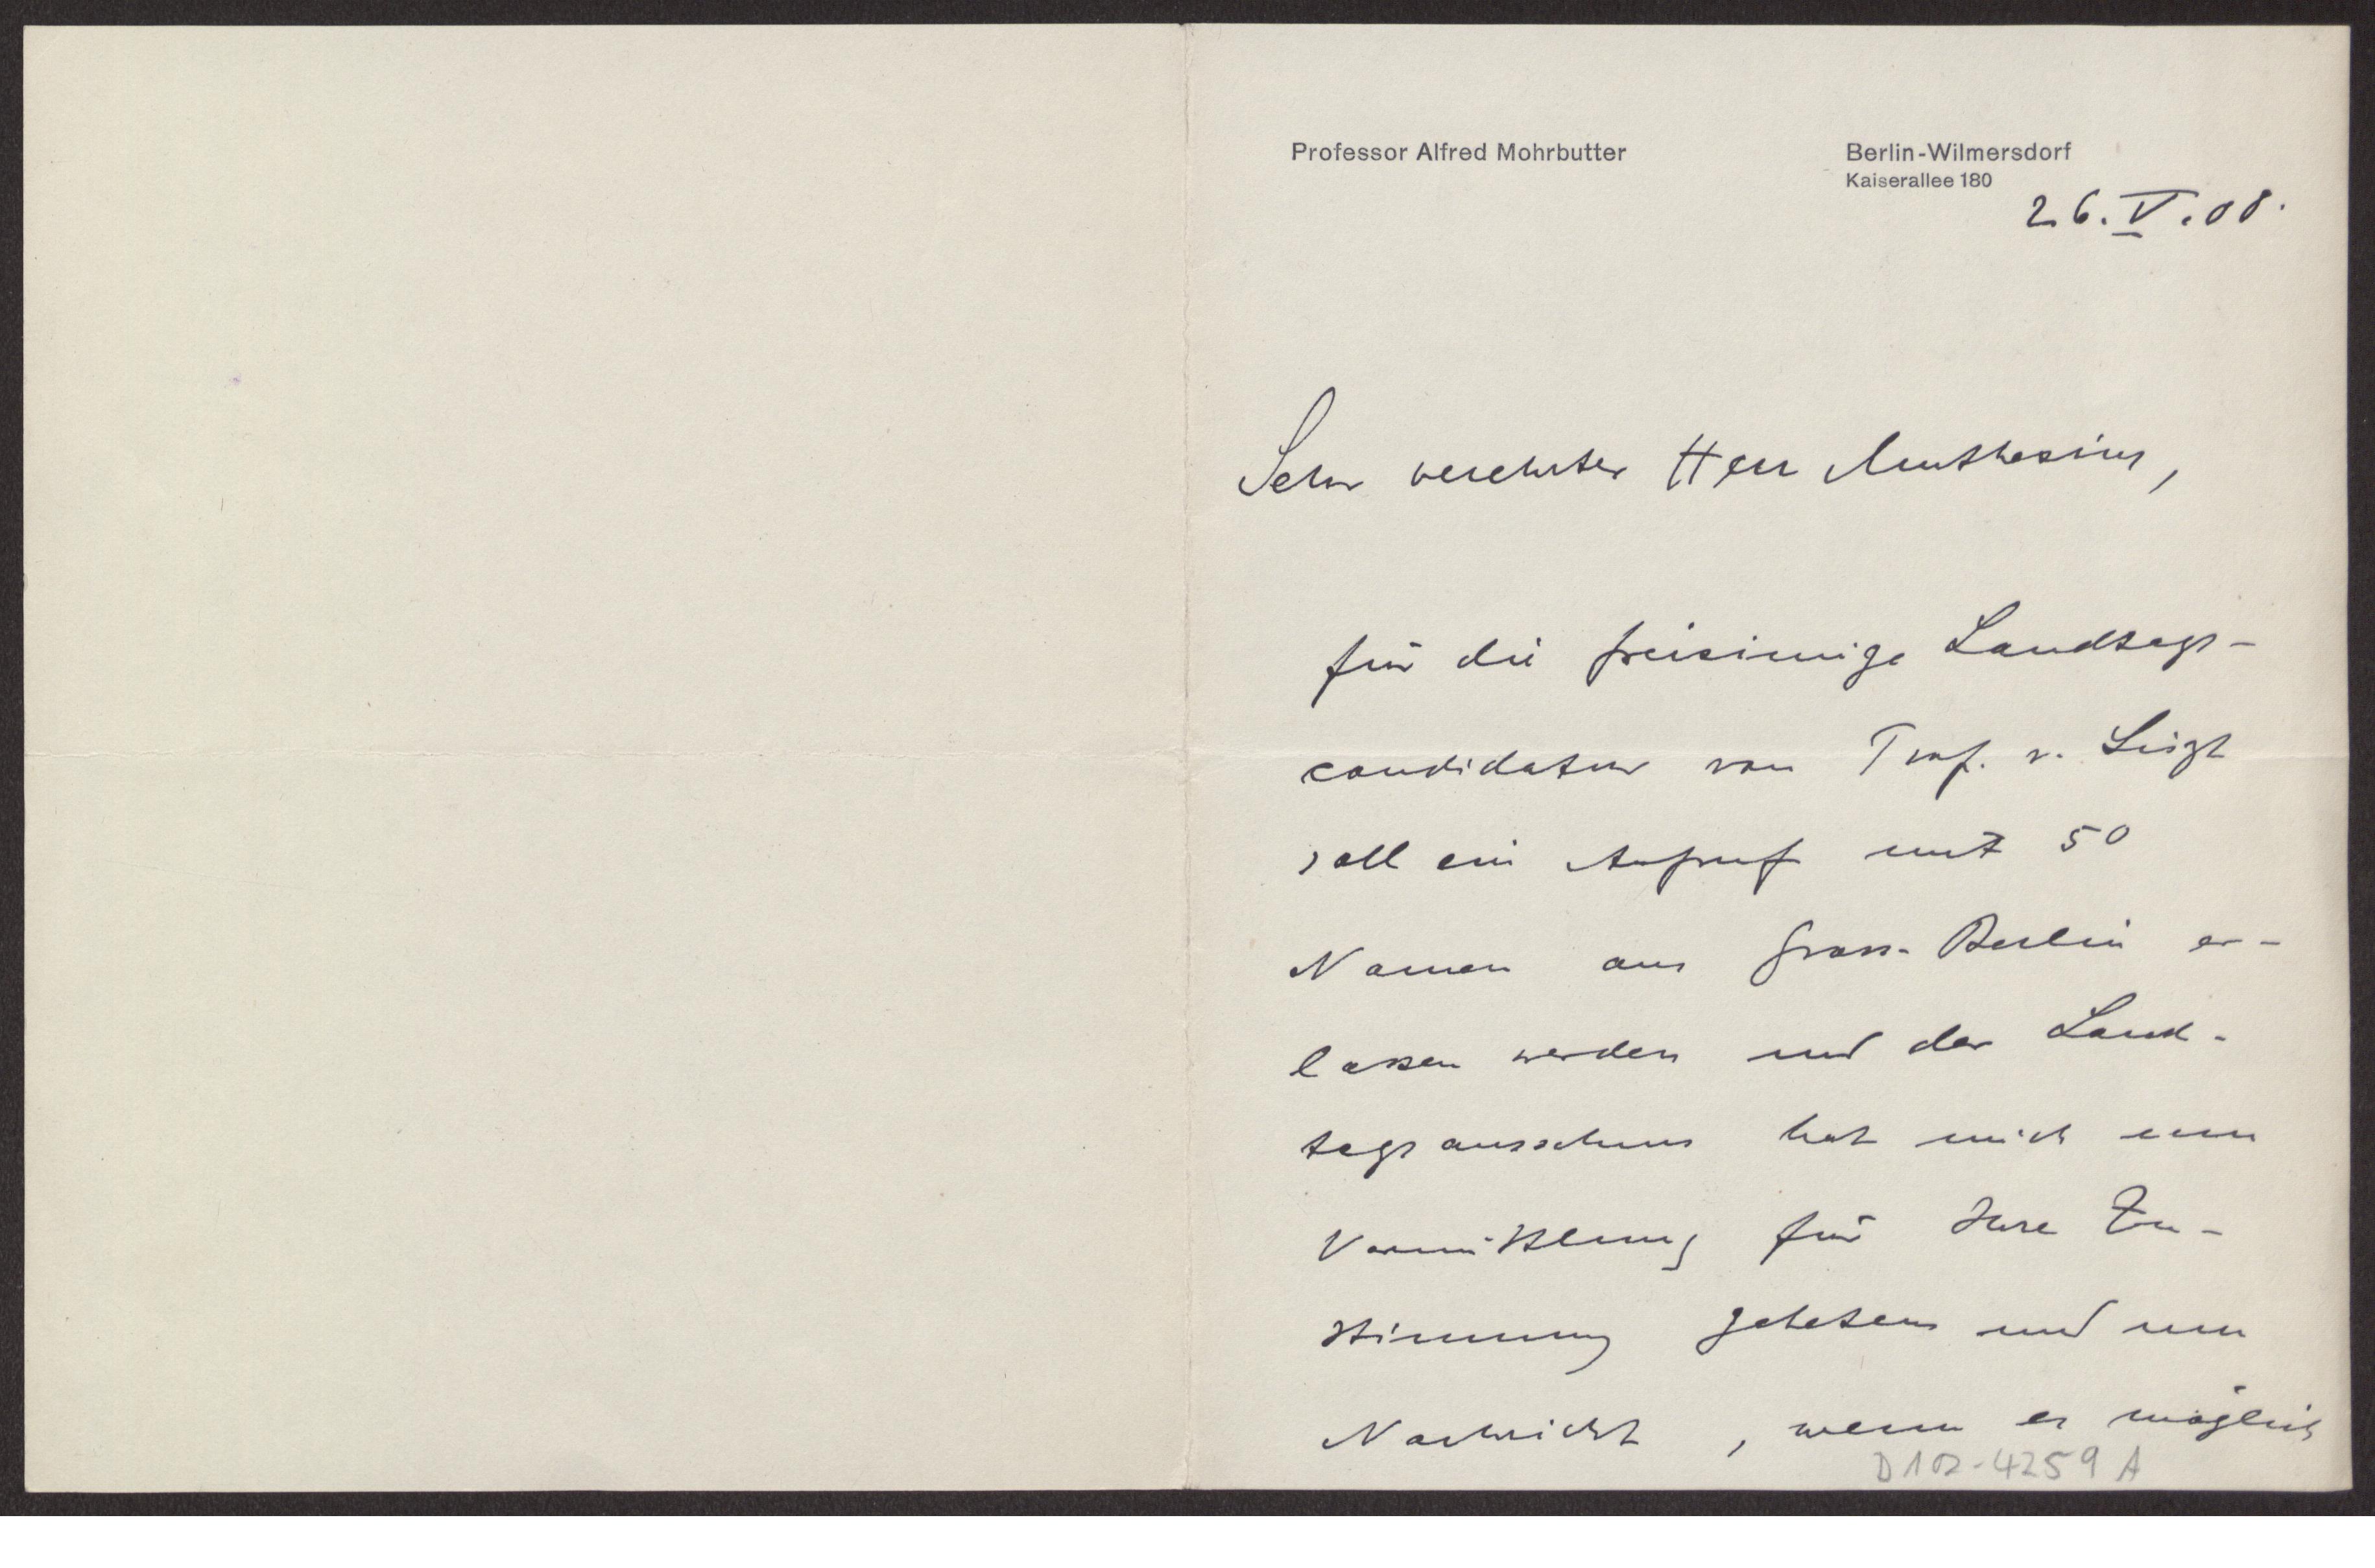 Professor Alfred Mohrbutter
Berlin-Wilmersdorf
Kaiserallee 180
26. V. 08.
Sehr verehrter Herr Muthesius,
für die freisinnige Landtags-
candidatur von Prof. v. Liszt
soll ein Aufruf mit 50
Namen aus Gross-Berlin er-
lassen werden und der Land-
tagsausschuss hat mich um
Vermittlung für Ihre Zu-
stimmung gebeten und um
Nachricht, wenn es möglich
D102-4259 A